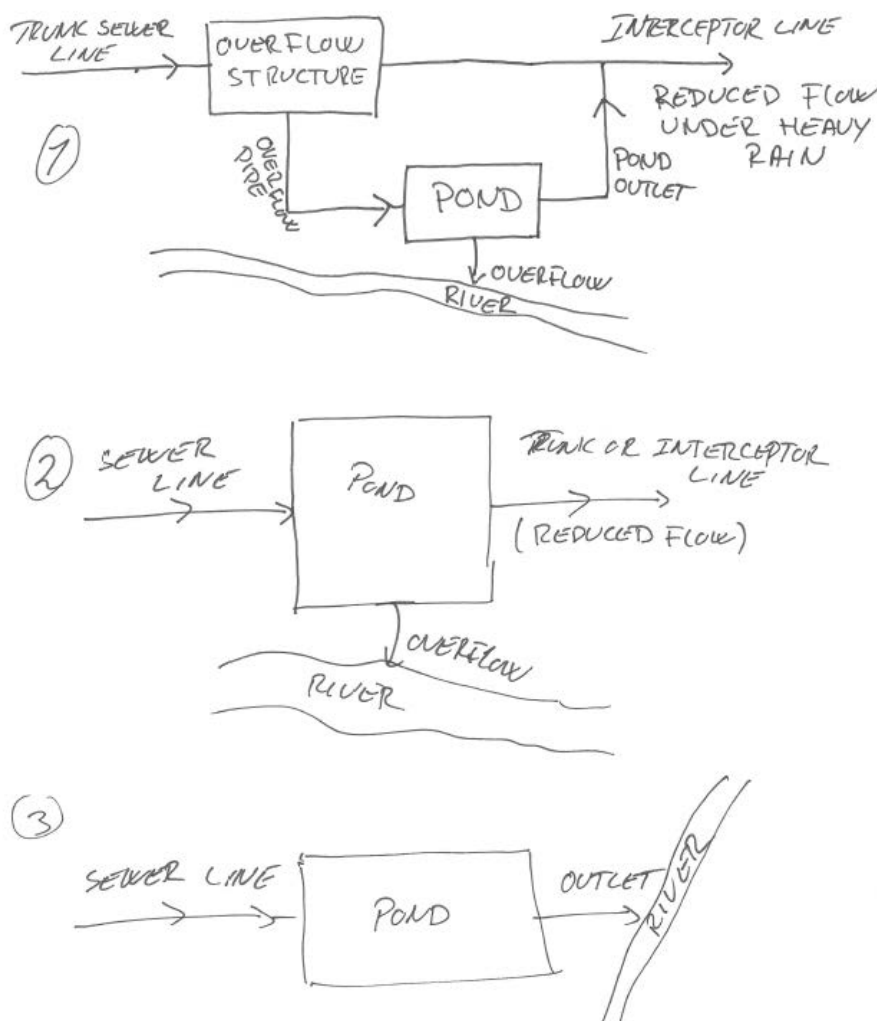 TRUNK SEWER
LINE
OVERFLOW
STRUCTURE
INTERCEPTOR LINE
REDUCED FLOW
UNDER HEAVY
RAIN
1
OVERFLOW
PIPE
POND
POND
OUTLET
OVERFLOW
RIVER
2
SEWER
LINE
POND
TRUNK OR INTERCEPTOR
LINE
(REDUCED FLOW)
OVERFLOW
RIVER
3
SEWER LINE
POND
OUTLET
RIVER